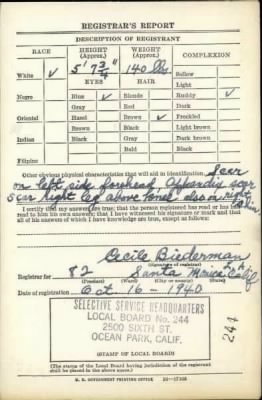 REGISTRAR'S REPORT
DESCRIPTION OF REGISTRANT
RACE HEIGHT (Approx.) WEIGHT (Approx.) COMPLEXION
5' 7 3/4" 140 lb. Sallow
White ✓ EYES HAIR Light
Negro Blue ✓ Blonde Ruddy ✓
Gray Red Dark
Oriental Hazel Brown ✓ Freckled
Brown Black Light brown
Indian Black Gray Dark brown
Bald Black
Filipino
Other obvious physical characteristics that will aid in identification Scar
on left side forehead, Appendix scar
scar right leg above knee also on right
I certify that my answers are true; that the person registered has read or has had
read to him his own answers; that I have witnessed his signature or mark and that
all of his answers of which I have knowledge are true, except as follows:
Cecile Biederman
(Signature of registrar)
Registrar for 82 Santa Monica Calif
(Precinct) (Ward) (City or county) (State)
Date of registration Oct 16 - 1940
SELECTIVE SERVICE HEADQUARTERS
LOCAL BOARD No. 244
2500 SIXTH ST.
OCEAN PARK, CALIF.
244
(STAMP OF LOCAL BOARD)
(The stamp of the Local Board having jurisdiction of the registrant
shall be placed in the above space.)
U. S. GOVERNMENT PRINTING OFFICE